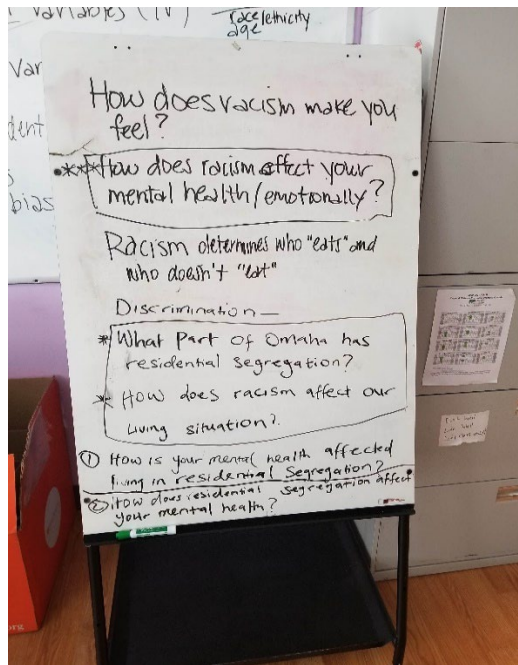 Variables (IV)
race/ethicity
age
Var
dent
bias
How does racism make you
feel?
***How does racism affect your
mental health/emotionally?
Racism determines who "eats" and
who doesn't "eat"
Discrimination—
* What Part of Omaha has
residential segregation?
* How does racism affect our
living situation?
① How is your mental health affected
living in residential Segregation?
② How does residential segregation affect
your mental health?